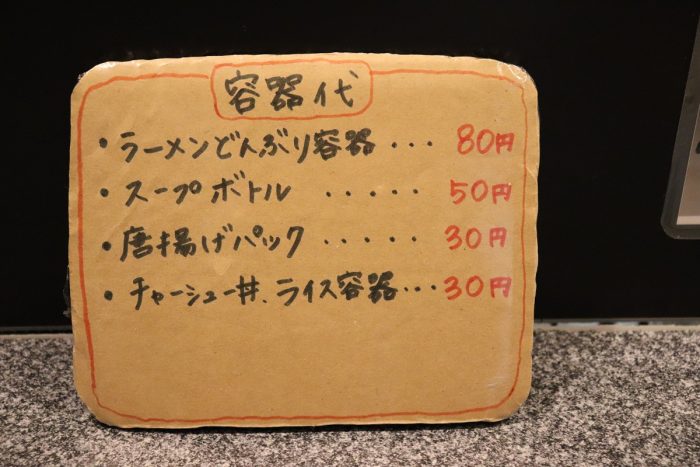 容器代
・ラーメンどんぶり容器・・・80円
・スープボトル ・・・・・50円
・唐揚げパック・・・・・30円
・チャーシュー丼、ライス容器・・・30円